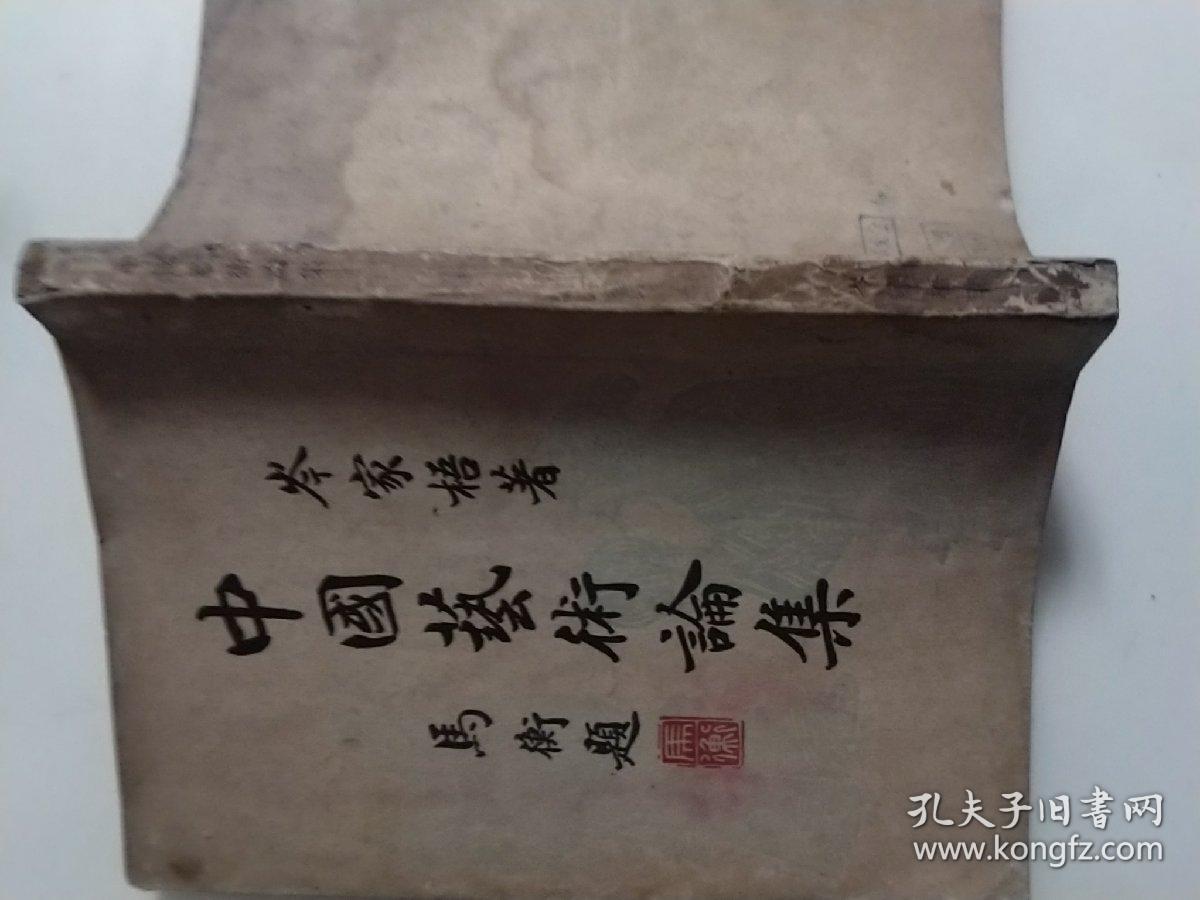 岑家梧著
中國藝術論集
馬衡題
馬衡
孔夫子旧书网
www.kongfz.com